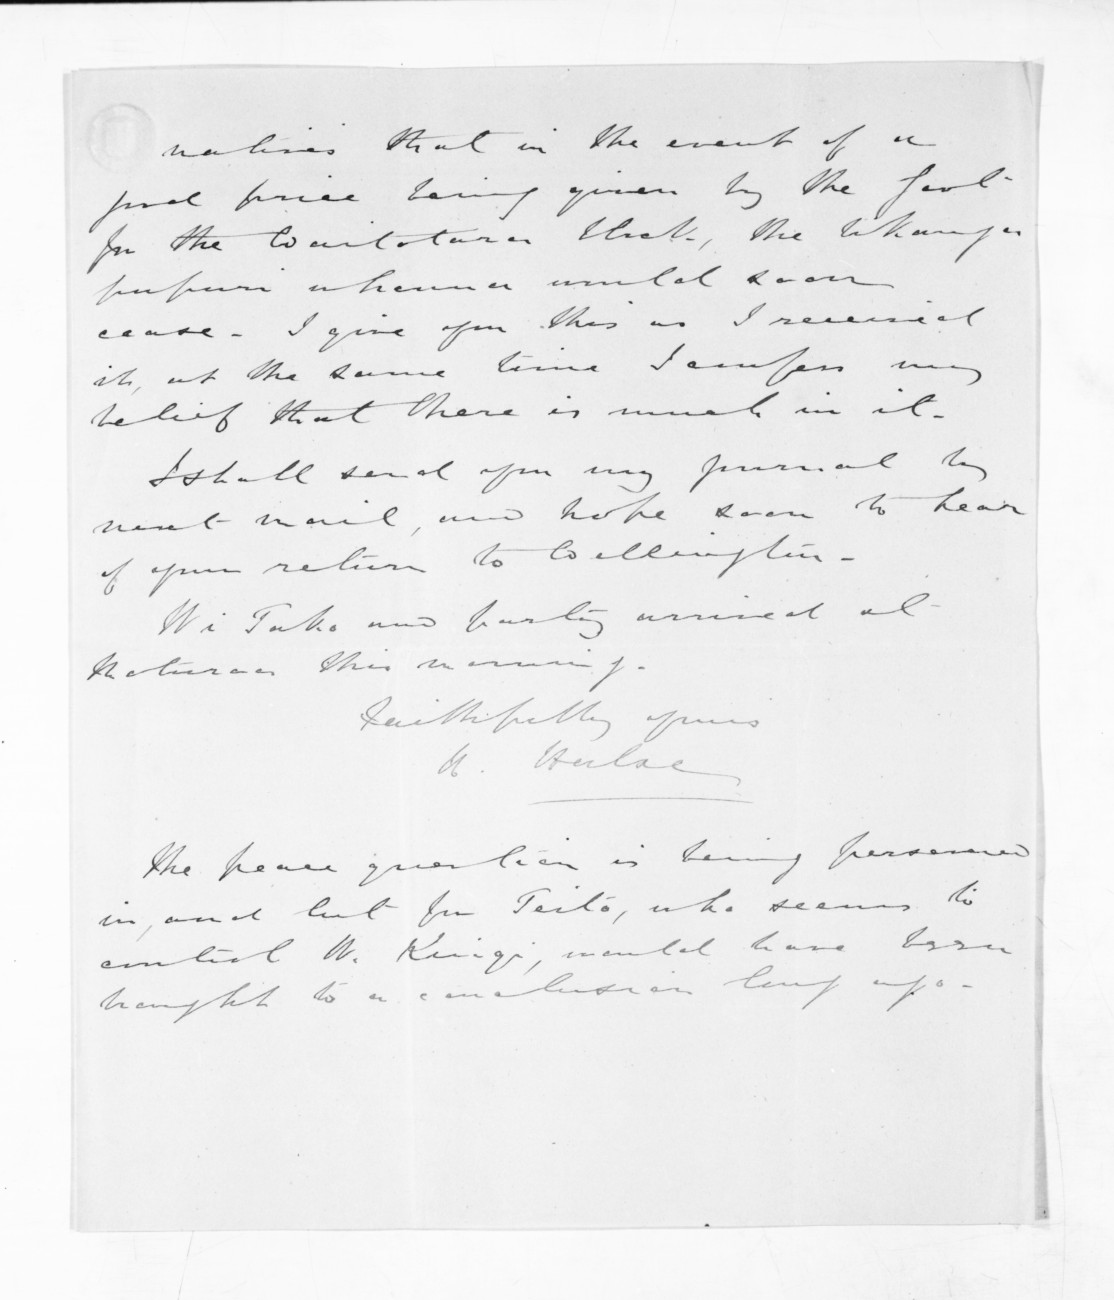 natives that in the event of a
good price being given by the Govt
for the Waitotara Block, the Whanga
pupuri whenua would soon
cease - I give you this as I received
it, at the same time I confess my
belief that there is much in it -
I shall send you my journal by
next mail, and hope soon to hear
of your return to Wellington -
Wi Tako and party arrived at
this morning -
Faithfully yours
H. Halse
The peace question is being persevered
in, and but for Teito, who seems to
control W. Kingi, would have been
brought to a conclusion long ago -